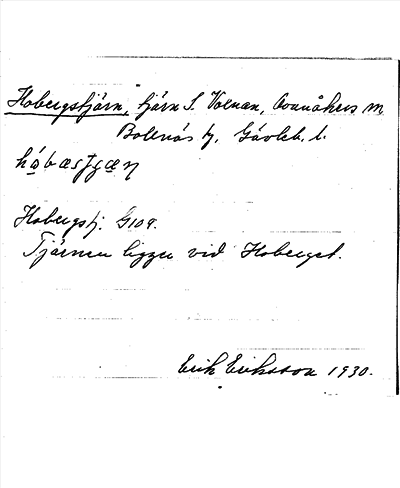 Hobergstjärn, tjärn S. Voxnan, Ovanåkers m
Bollnäs tj. Gävleb. l.
Hobergstj. G109.
Tjärnen ligger vid Hoberget.
Erik Eriksson 1930.